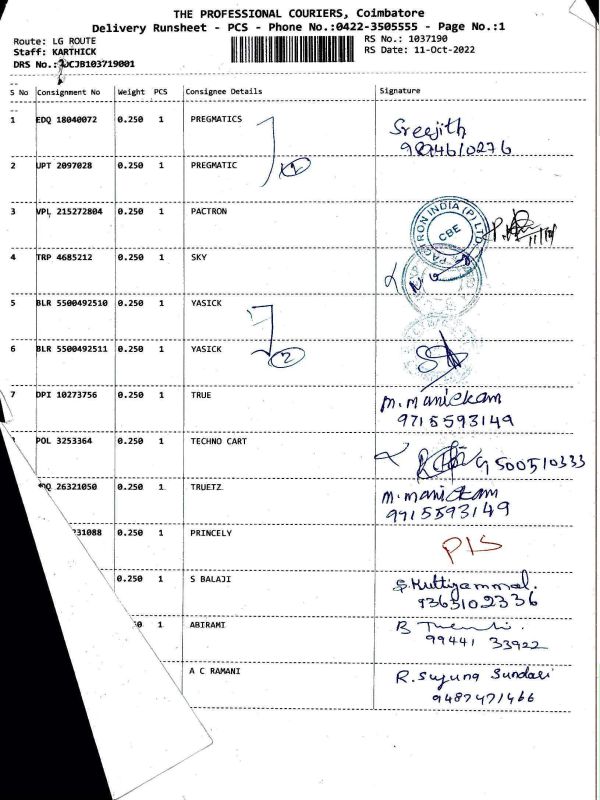 THE PROFESSIONAL COURIERS, Coimbatore
Delivery Runsheet - PCS - Phone No.:0422-3505555 - Page No.:1
Route: LG ROUTE
RS No.: 1037190
Staff: KARTHICK
RS Date: 11-Oct-2022
DRS No.: CJB103719001
S No Consignment No Weight PCS Consignee Details Signature
1 EDQ 18040072 0.250 1 PREGMATICS Sreejith
9894610276
2 UPT 2097028 0.250 1 PREGMATIC
3 VPL 215272804 0.250 1 PACTRON
PACTRON INDIA (P) LTD
CBE
4 TRP 4685212 0.250 1 SKY
5 BLR 5500492510 0.250 1 YASICK
2
6 BLR 5500492511 0.250 1 YASICK
7 DPI 10273756 0.250 1 TRUE M.Manickam
9715593149
POL 3253364 0.250 1 TECHNO CART 9500510333
26321050 0.250 1 TRUETZ M.Manickam
9715593149
31088 0.250 1 PRINCELY PIS
0.250 1 S BALAJI S.Kuttiyammal.
9363102336
1 ABIRAMI B
99441 33922
A C RAMANI R. Suguna Sundari
9487471466